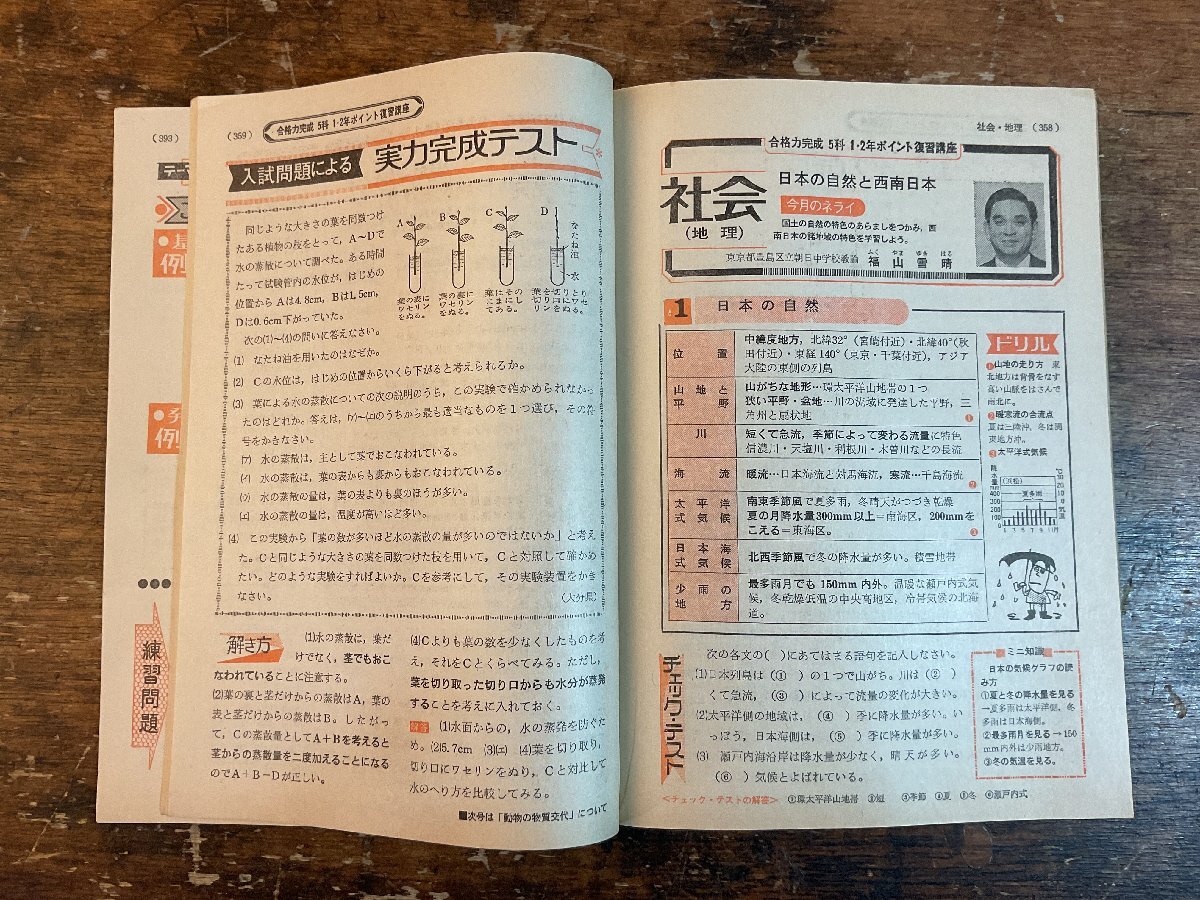 (393)
(359)
合格力完成 5科 1・2年ポイント復習講座
入試問題による
実力完成テスト
同じような大きさの葉を同数つけ
たある植物の枝をとって，A〜Dで
水の蒸散について調べた。ある時間
たって試験管内の水位が，はじめの
位置からAは4.8cm，Bは1.5cm，
Dは0.6cm下がっていた。
次の(1)〜(4)の問いに答えなさい。
A
B
C
D
なたね油
水
葉の表に
ワセリン
をぬる。
葉の裏に
ワセリン
をぬる。
葉はその
ままにし
てある。
葉を切りとり
切り口にワセ
リンをぬる。
(1) なたね油を用いたのはなぜか。
(2) Cの水位は，はじめの位置からいくら下がると考えられるか。
(3) 葉による水の蒸散についての次の説明のうち，この実験で確かめられなかっ
たのはどれか。答えは，(ア)〜(エ)のうちから最も適当なものを1つ選び，その符
号をかきなさい。
(ア) 水の蒸散は，主として葉でおこなわれている。
(イ) 水の蒸散は，葉の表からも裏からもおこなわれている。
(ウ) 水の蒸散の量は，葉の表よりも裏のほうが多い。
(エ) 水の蒸散の量は，温度が高いほど多い。
(4) この実験から「葉の数が多いほど水の蒸散の量が多いのではないか」と考え
た。Cと同じような大きさの葉を同数つけた枝を用いて，Cと対照して確かめ
たい。どのような実験をすればよいか。Cを参考にして，その実験装置をかき
なさい。
(大分県)
解き方
(1)水の蒸散は，葉だ
けでなく，茎でもおこ
なわれていることに注意する。
(2)葉の裏と茎だけからの蒸散はA，葉の
表と茎だけからの蒸散はB。したがっ
て，Cの蒸散量としてA＋Bを考えると
茎からの蒸散量を二度加えることになる
のでA＋B－Dが正しい。
(4)Cよりも葉の数を少なくしたものを考
え，それをCとくらべてみる。ただし，
葉を切り取った切り口からも水分が蒸発
することを考えに入れておく。
(1)水面からの，水の蒸発を防ぐた
め。(2)5.7cm (3)(エ) (4)葉を切り取り，
切り口にワセリンをぬり，Cと対比して
水のへり方を比較してみる。
■次号は「動物の物質交代」について
例
例
練習問題
社会・地理 (358)
合格力完成 5科 1・2年ポイント復習講座
社会
(地理)
日本の自然と西南日本
今月のネライ
国土の自然の特色のあらましをつかみ，西
南日本の諸地域の特色を学習しよう。
ふく やま ゆき はる
東京都豊島区立朝日中学校教諭 福山雪晴
1 日本の自然
位置
中緯度地方，北緯32°(宮崎付近)・北緯40°(秋
田付近)・東経140°(東京・千葉付近)，アジア
大陸の東側の列島
山地と
平野
山がちな地形…環太平洋山地帯の1つ
狭い平野・盆地…川の流域に発達した平野，三
角州と扇状地
❶
川
短くて急流，季節によって変わる流量に特色
信濃川・天塩川・利根川・木曽川などの長流
海流
暖流…日本海流と対馬海流，寒流…千島海流
❷
太平洋
式気候
南東季節風で夏多雨，冬晴天がつづき乾燥
夏の月降水量300mm以上＝南海区，200mmを
こえる＝東海区。
❸
日本海
式気候
北西季節風で冬の降水量が多い。積雪地帯
少雨の
地方
最多雨月でも150mm内外。温暖な瀬戸内式気
候，冬乾燥低温の中央高地区，冷帯気候の北海
道。
ドリル
❶山地の走り方 東
北地方は背骨をなす
高い山脈をはさんで
南北に。
❷暖寒流の合流点
夏は三陸沖，冬は関
東地方沖。
❸太平洋式気候
降水量
mm
400
300
200
100
0
(浜松)
夏多雨
気温
チェック・テスト
次の各文の( )にあてはまる語句を記入しなさい。
(1)日本列島は(①)の1つで山がち。川は(②)
くて急流，(③)によって流量の変化が大きい。
(2)太平洋側の地域は，(④)季に降水量が多い。い
っぽう，日本海側は，(⑤)季に降水量が多い。
(3) 瀬戸内海沿岸は降水量が少なく，晴天が多い。
(⑥)気候とよばれている。
<チェック・テストの解答> ①環太平洋山地帯 ②短 ③季節 ④夏 ⑤冬 ⑥瀬戸内式
ミニ知識
日本の気候グラフの読
み方
①夏と冬の降水量を見る
→夏多雨は太平洋側，冬
多雨は日本海側。
②最多雨月を見る→150
mm内外は少雨地方。
③冬の気温を見る。